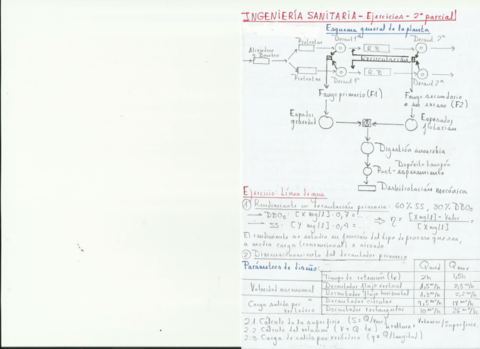 INGENIERÍA SANITARIA - Ejercicios - 2º parcial
Esquema general de la planta
Pretratam.
Decant 1º
Decant 2º
R.B.
Recirculación
R.B.
Pretratam
Decant 1º
Decant 2º
Fango primario (F1)
Fango secundario
o en exceso (F2)
Espesador
gravedad
Espesador
flotación
Digestión anaerobia
Depósito tampón
Post-espesamiento
Deshidratación mecánica
Ejercicio: Línea de agua
① Rendimiento en decantación primaria: 60% SS, 30% DBO5
→ DBO5: [X mg/l] · 0,7 =
→ SS: [Y mg/l] · 0,4 =
η = [X mg/l] - Valor
[X mg/l]
El rendimiento se estudia en función del tipo de proceso que sea,
a media carga (convencional) o aireado
② Dimensionamiento del decantador primario
Parámetros de diseño:
Qmed
Qmax
Tiempo de retención (tr)
2h
Velocidad ascensional
Decantador flujo vertical
Decantador flujo horizontal
Carga salida por vertedero
Decantador circular
Decantador rectangular
2.1. Cálculo de la superficie (S = Q/Vasc)
2.2. Cálculo del volumen (V = Q · tr)
2.3. Carga de salida por vertedero (q = Q/longitud)